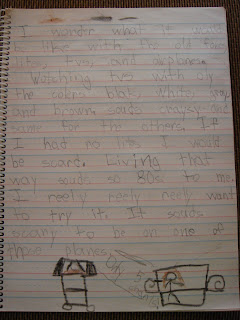 I wonder what it would
be like with the old
lites, tvs, and airplanes.
Watching tvs with only
the colors blak, white, gray
and brown. souds crazy and
same for the others. If
I had no lits I would
be scard. Living that
way souds so 80s to me.
I reely reely reely want
to try it. It souds
scary to be on one of
those planes.